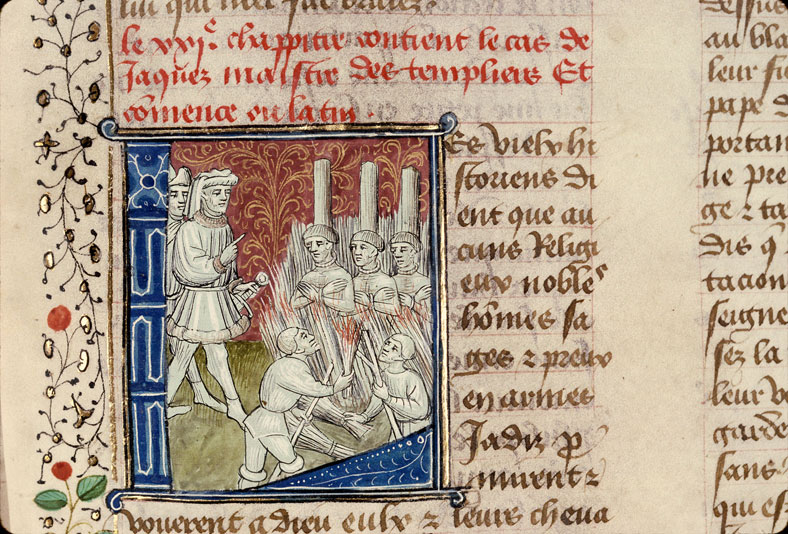 le xxi^e. chappitre contient le cas de
Jaques maistre des templiers Et
cõmence ou latin.
Es vielx hi
storiens di
ent que au
cuns Religi
eux nobles
hõmes sa
ges ⁊ preux
en armes
Jadiz p
mirent ⁊
vouerent a dieu eulx ⁊ leurs cheva
dessus
au bla
leur
pape
portan
ne pre
ge ⁊ ta
dis q̃
tacion
seigne
sez la
leur vo
garde
sans
qui es